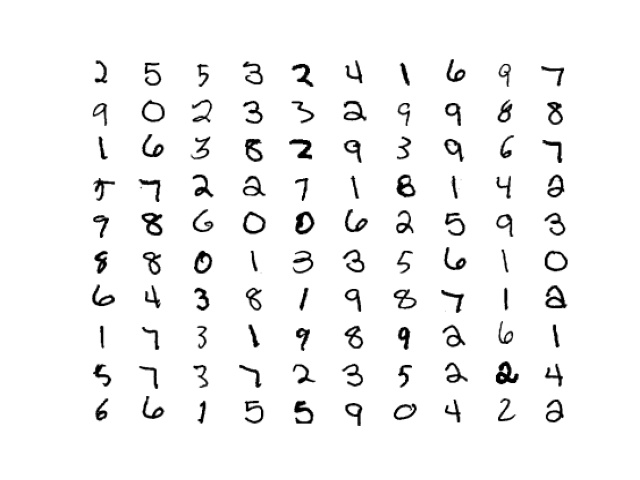 2 5 5 3 2 4 1 6 9 7
9 0 2 3 3 2 9 9 8 8
1 6 3 8 2 9 3 9 6 7
5 7 2 2 7 1 8 1 4 2
9 8 6 0 0 6 2 5 9 3
8 8 0 1 3 3 5 6 1 0
6 4 3 8 1 9 8 7 1 2
1 7 3 1 9 8 9 2 6 1
5 7 3 7 2 3 5 2 2 4
6 6 1 5 5 9 0 4 2 2